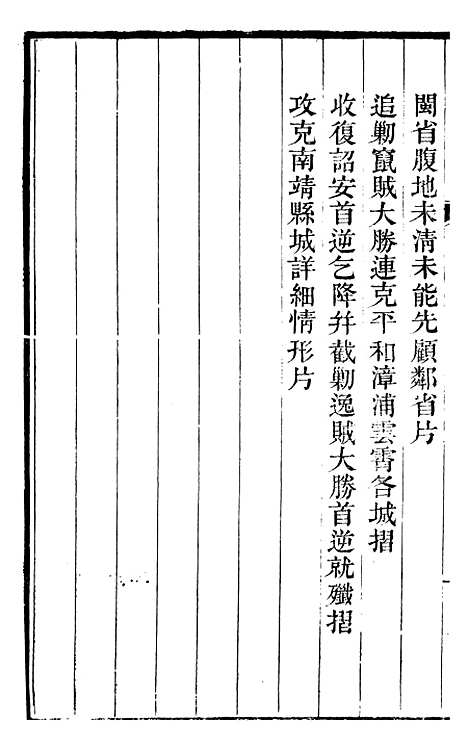 閩省腹地未淸未能先顧鄰省片
追剿竄賊大勝連克平和漳浦雲霄各城摺
收復詔安首逆乞降幷截剿逸賊大勝首逆就殲摺
攻克南靖縣城詳細情形片